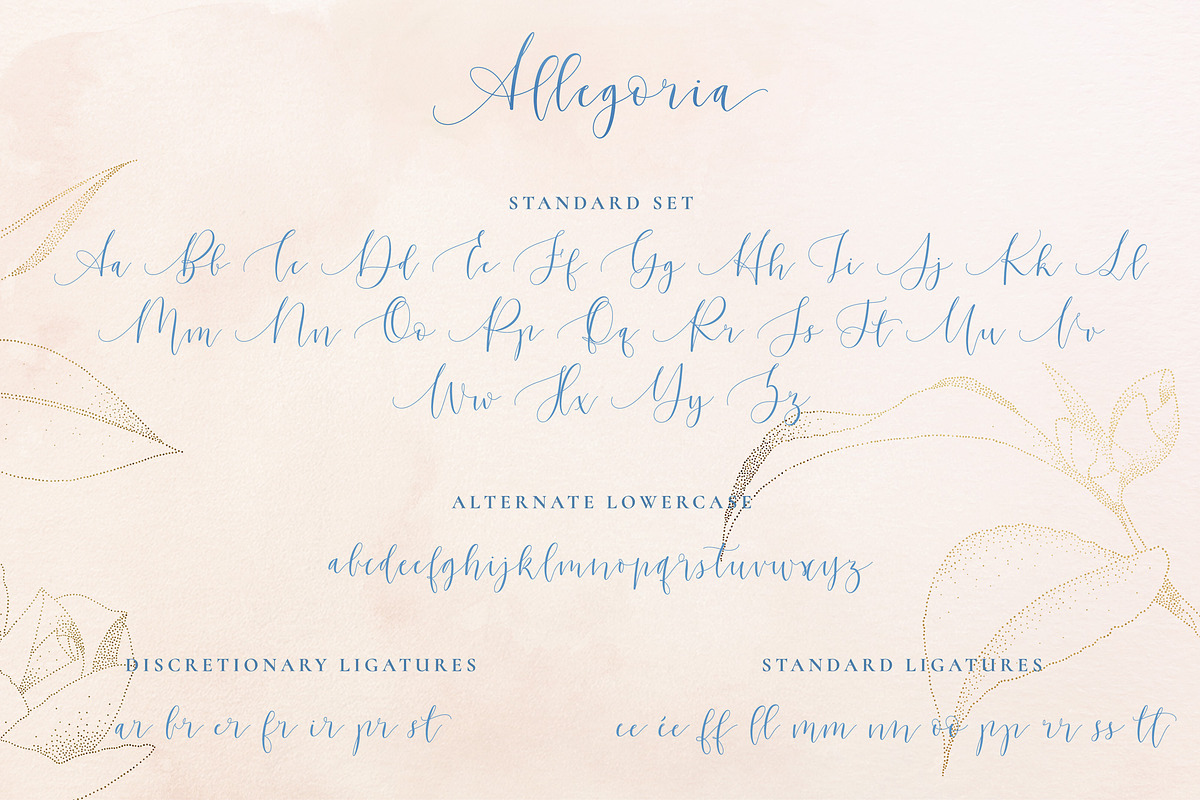 Allegoria
STANDARD SET
Aa Bb Cc Dd Ee Ff Gg Hh Ii Jj Kk Ll
Mm Nn Oo Pp Qq Rr Ss Tt Uu Vv
Ww Xx Yy Zz
ALTERNATE LOWERCASE
abcdeefghijklmnopqrstuvwxyz
DISCRETIONARY LIGATURES
ar br er fr ir pr st
STANDARD LIGATURES
ee ée ff ll mm nn oo pp rr ss tt